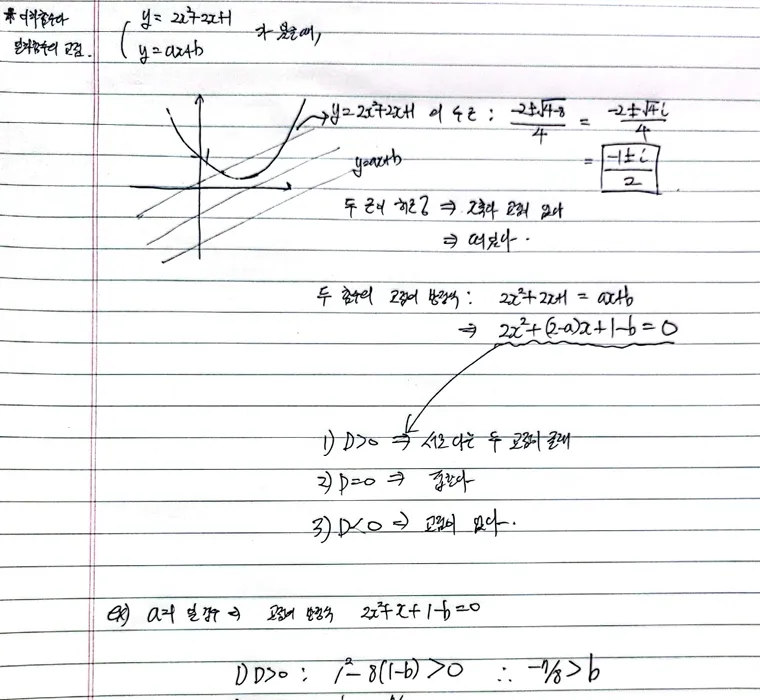 * 이차함수와
일차함수의 교점.
y = 2x²+2x+1
y = ax+b 가 있을 때,
y=2x²+2x+1 의 두근 : (-2±√4-8)/4 = (-2±√4i)/4
= (-1±i)/2
y=ax+b
1
두 근이 허근 ⇒ x축과 교점이 없다
⇒ 떠있다.
두 함수의 교점의 방정식 : 2x²+2x+1 = ax+b
⇒ 2x²+(2-a)x+1-b=0
1) D>0 ⇒ 서로 다른 두 교점이 존재
2) D=0 ⇒ 접한다
3) D<0 ⇒ 교점이 없다.
ex) a=1 일 경우 ⇒ 교점의 방정식 2x²+x+1-b=0
1) D>0 : 1²-8(1-b) >0 ∴ -7/8 > b